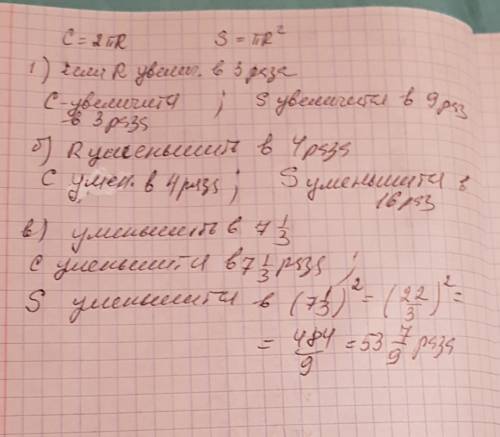 C = 2πR S = πR²
1) Если R увелич. в 3 раза
C - увеличится ; S увеличится в 9 раз
в 3 раза
б) R уменьшить в 4 раза
C умен. в 4 раза ; S уменьшится в
16 раз
в) уменьшить в 7 1/3
C уменьшится в 7 1/3 раза ;
S уменьшится в (7 1/3)² = (22/3)² =
= 484/9 = 53 7/9 раза